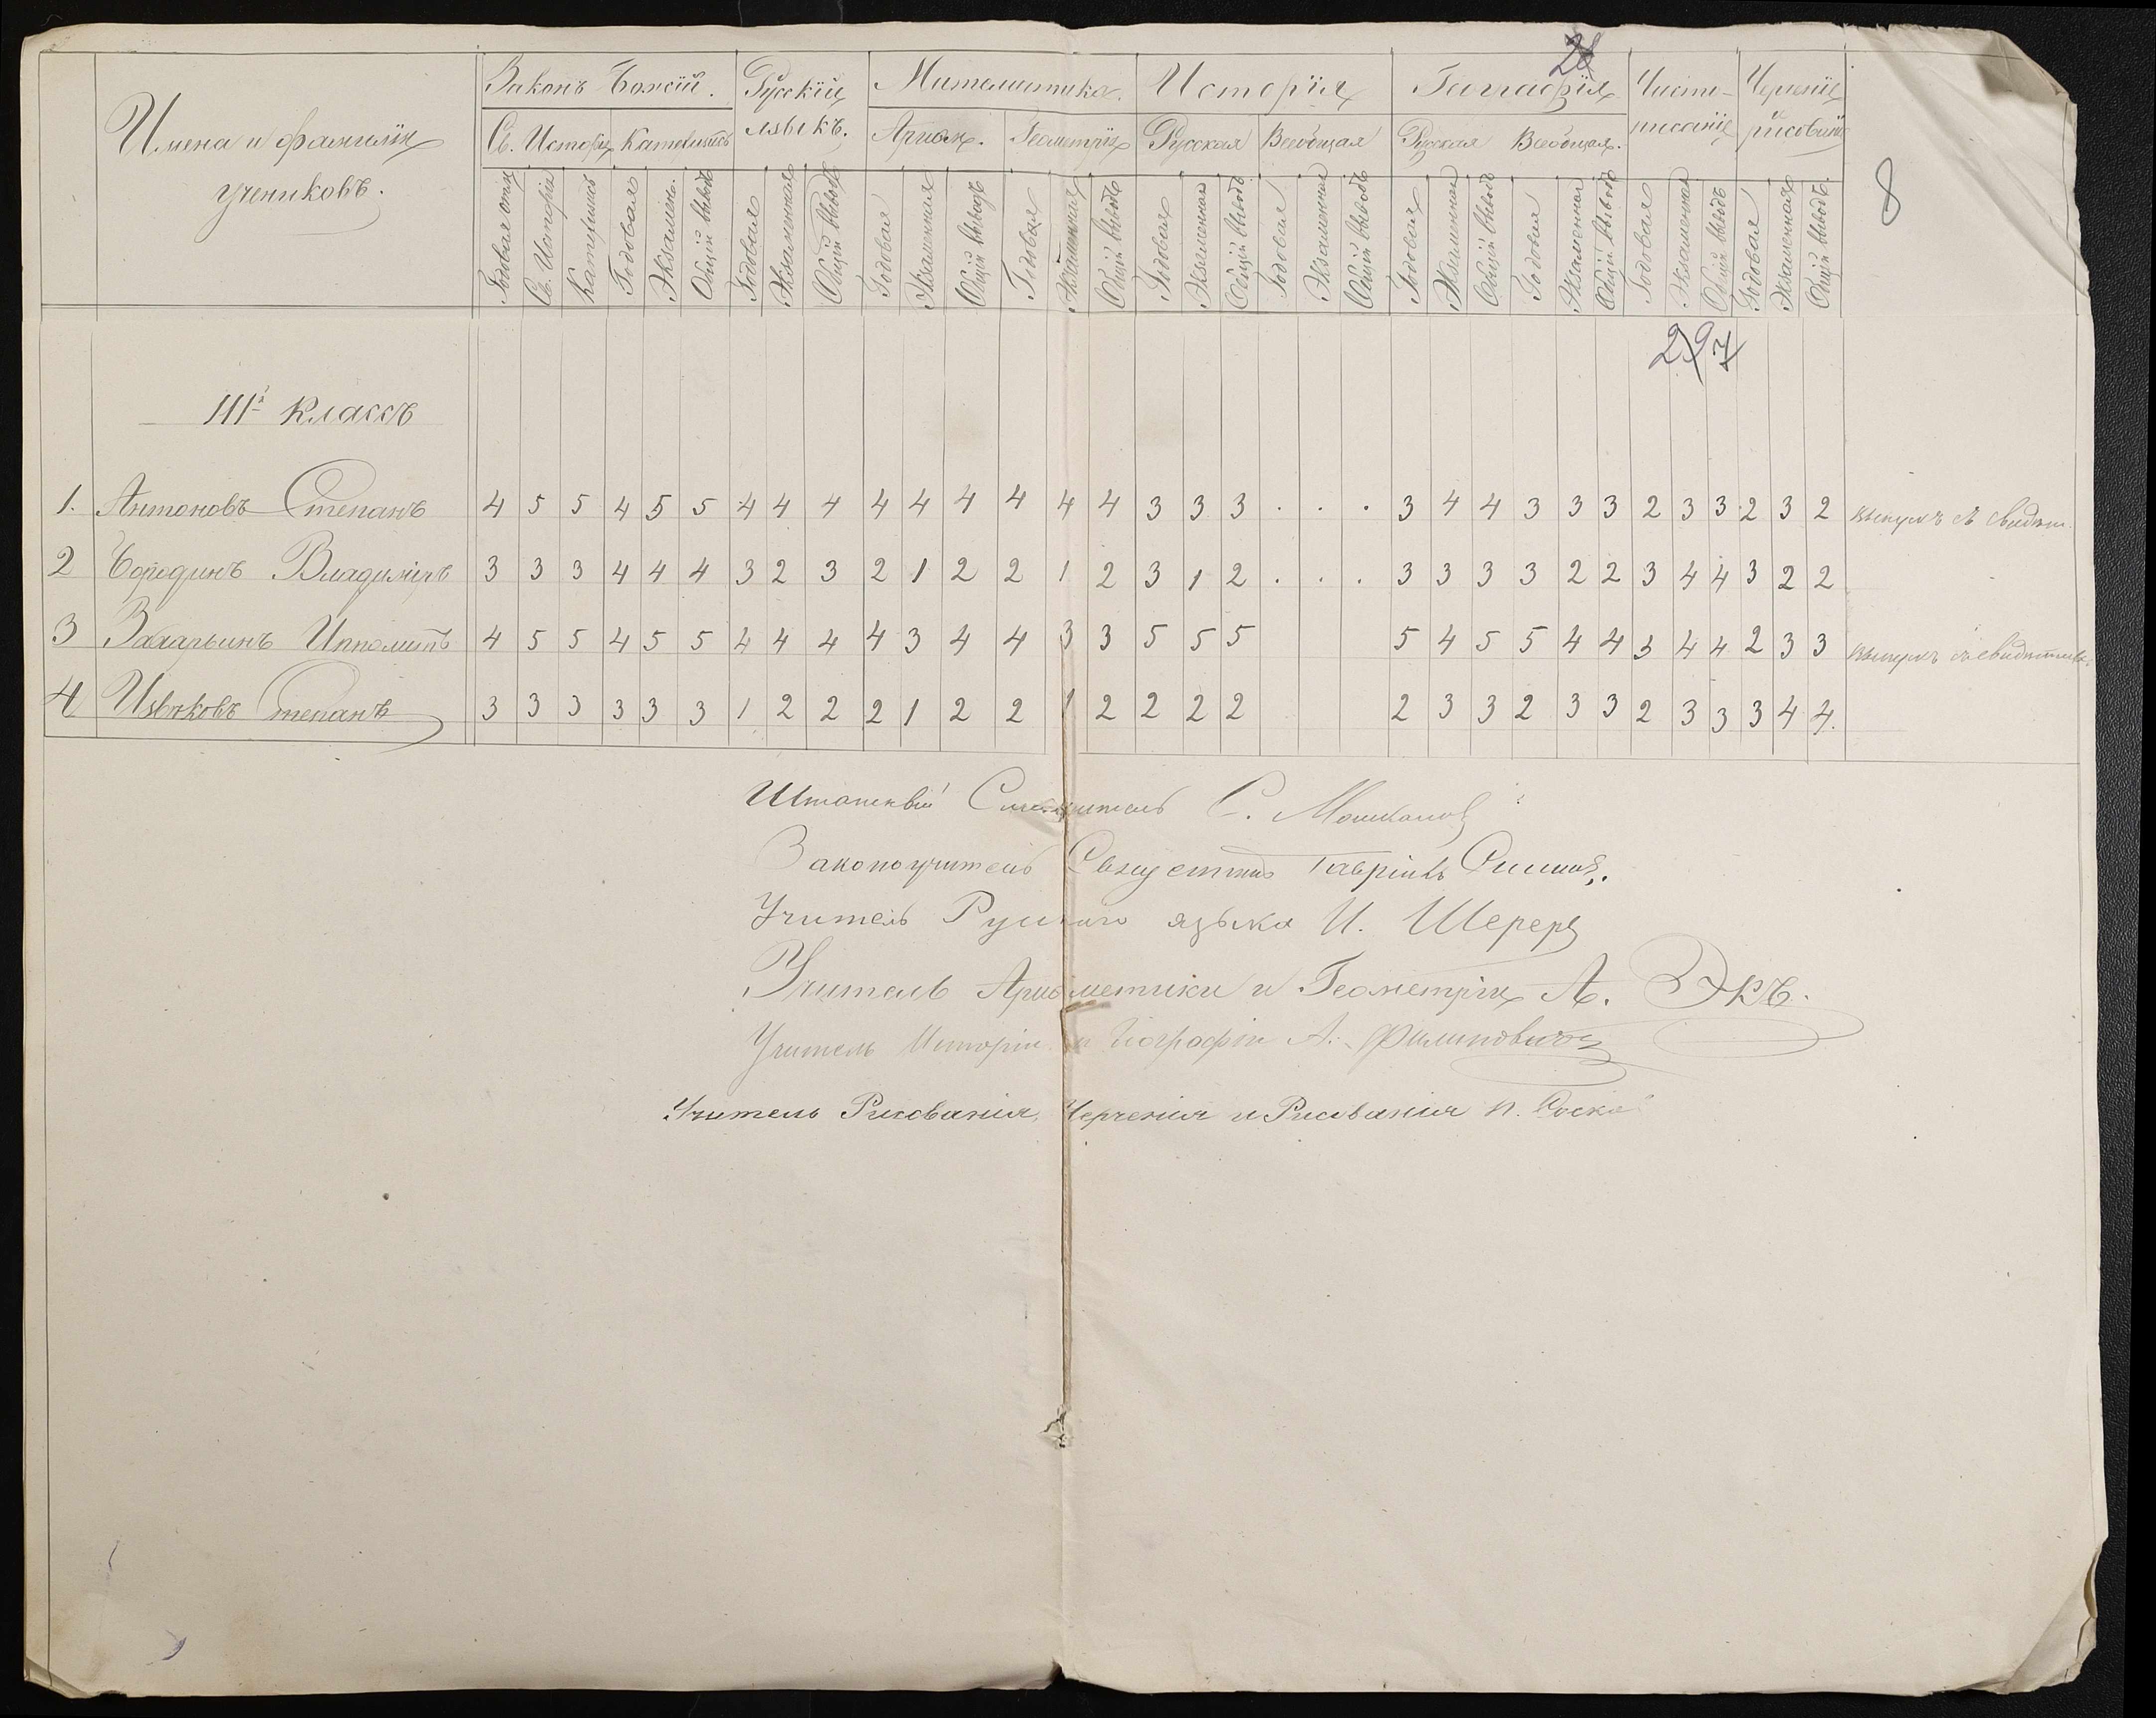 28
Имена и фамиліи учениковъ. Законъ Божій. Русскій языкъ. Математика. Исторія Географія Чисто-писаніе Черченіе и рисованіе 8
Св. Исторія Катехизисъ Ариѳм. Геометрія Русская Всеобщая Русская Всеобщая.
Годовая Св. Исторія Катехизисъ Годовая Экзамен. Общій выводъ Годовая Экзаменная Общій выводъ Годовая Экзаменная Общій выводъ Годовая Экзаменная Общій выводъ Годовая Экзаменная Общій выводъ Годовая Экзаменная Общій выводъ Годовая Экзаменная Общій выводъ Годовая Экзаменная Общій выводъ Годовая Экзаменная Общій выводъ Годовая Экзаменная Общій выводъ.
297
III й классъ
1. Антоновъ Степанъ 4 5 5 4 5 5 4 4 4 4 4 4 4 4 4 3 3 3 . . . 3 4 4 3 3 3 2 3 3 2 3 2 выпускъ съ свидѣт.
2 Бородинъ Владиміръ 3 3 3 4 4 4 3 2 3 2 1 2 2 1 2 3 1 2 . . . 3 3 3 3 2 2 3 4 4 3 2 2
3 Захарьинъ Ипполитъ 4 5 5 4 5 5 4 4 4 4 3 4 4 3 3 5 5 5 5 4 5 5 4 4 3 4 4 2 3 3 выпускъ съ свидѣтельс.
4 Извѣковъ Степанъ 3 3 3 3 3 3 1 2 2 2 1 2 2 1 2 2 2 2 2 3 3 2 3 3 2 3 3 3 4 4.
Штатный Смотритель С.
Законоучитель Гавріилъ
Учитель Русскаго языка И. Шереръ
Учитель Ариѳметики и Геометріи А. Экъ.
Учитель Исторіи и Географіи А. Филиповичъ
Учитель Рисованія, Черченія и Рисованія П.